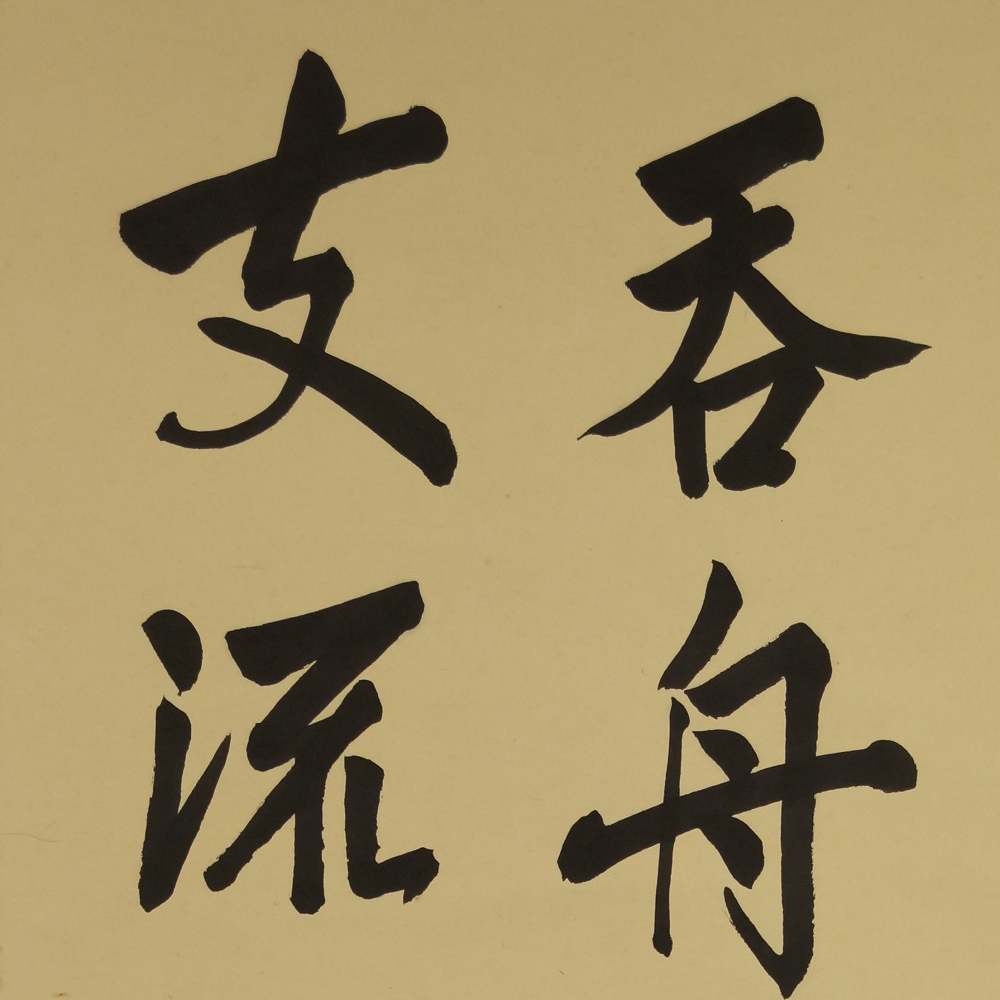 吞舟
支流